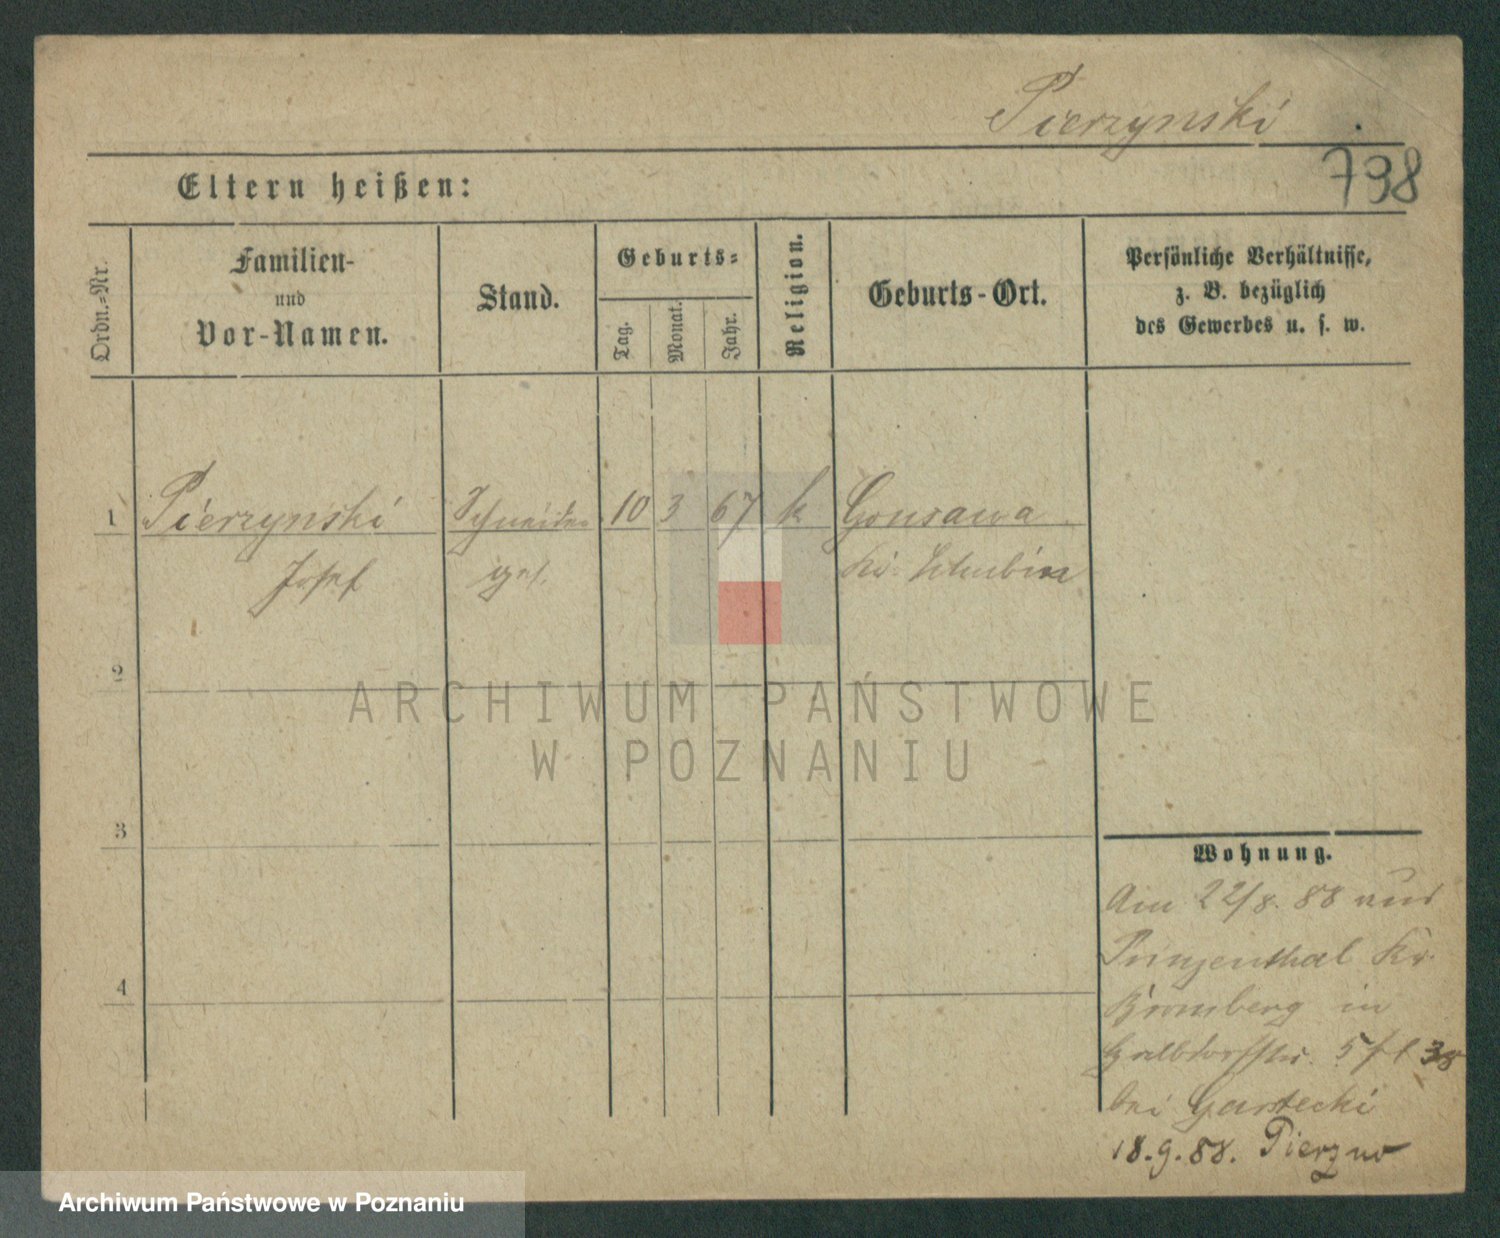 Pierzynski
798
Eltern heißen:
Ordn.-Nr.
Familien-
und
Vor-Namen.
Stand.
Geburts-
Tag.
Monat.
Jahr.
Religion.
Geburts-Ort.
Persönliche Verhältnisse,
z. B. bezüglich
des Gewerbes u. s. w.
1 Pierzynski Schneider 10 3 67 k Gonsawa
Josef ges. Kr. Schubin
2
ARCHIWUM PAŃSTWOWE
W POZNANIU
3
Wohnung.
Am 22/8. 88 aus
Prinzenthal Kr.
4
Bromberg in
38
bei Gartecki
18.9.88.
Archiwum Państwowe w Poznaniu